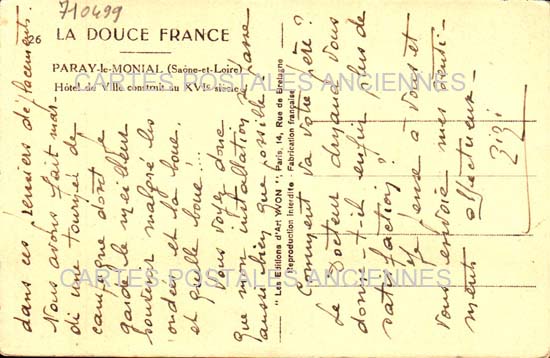 710499
26 LA DOUCE FRANCE
PARAY-le-MONIAL (Saône-et-Loire)
Hôtel de Ville construit au XVIe siècle
CARTES POSTALES ANCIENNES
CARTES POSTALES ANCIENNES
"Les Editions d'Art YVON" Paris, 14, Rue de Bretagne
Reproduction Interdite - Fabrication française
dans ces derniers déplacements.
Nous avons fait mar-
di une tournée de
campagne dont je
garde le meilleur
souvenir malgré les
ondées et la boue.
et quelle boue!...
Vous voyez donc
que mon installation passe
aussi bien que possible.
Comment va votre père?
Le Docteur Armand vous
donne-t-il enfin plus de
satisfaction?
Je pense à vous et
vous envoie mes senti-
ments affectueux -
Zizi